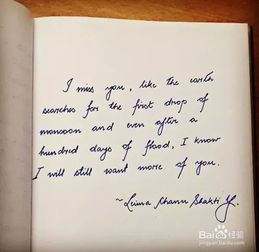 I miss you, like the earth
searches for the first drop of
monsoon and even after a
hundred days of flood, I know
I will still want more of you.
~ Leima Bhanu Shakti Y.
Bai 经验
jingyan.baidu.com